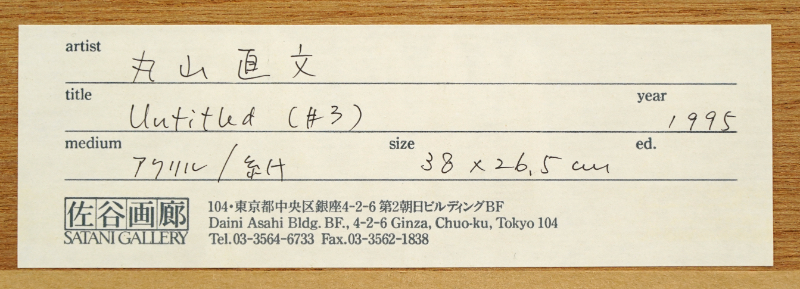 artist
丸山直文
title
Untitled (#3)
year
1995
medium
アクリル/
size
38 x 26.5 cm
ed.
佐谷画廊
SATANI GALLERY
104・東京都中央区銀座4-2-6 第2朝日ビルディングBF
Daini Asahi Bldg. BF., 4-2-6 Ginza, Chuo-ku, Tokyo 104
Tel.03-3564-6733 Fax.03-3562-1838